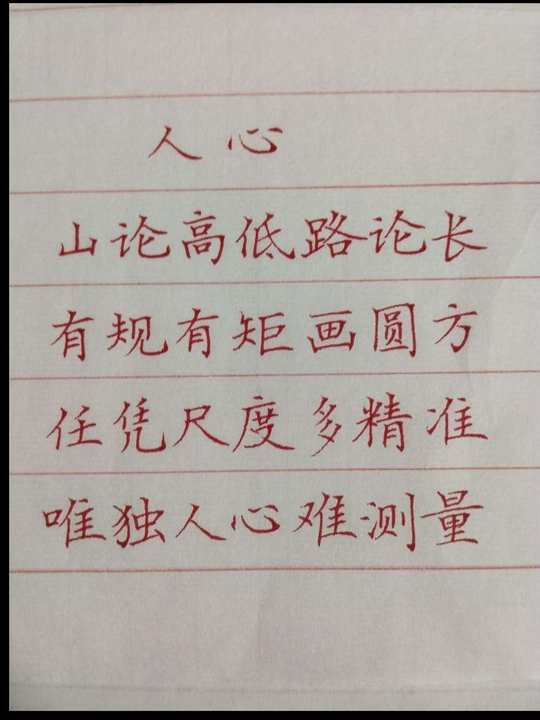 人心
山论高低路论长
有规有矩画圆方
任凭尺度多精准
唯独人心难测量